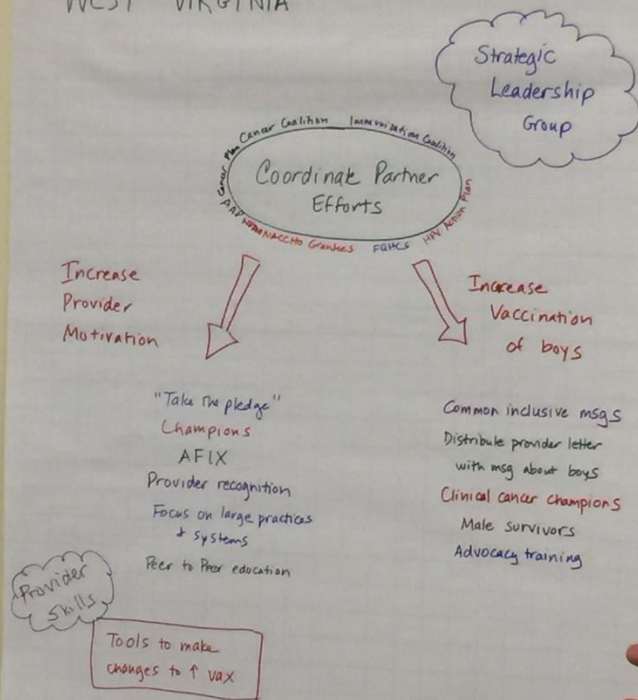 WEST VIRGINIA
Strategic
Leadership
Group
Cancer Coalition Immunization Coalition
Cancer Plan
Coordinate Partner
Efforts
AAP
NACCHO Grantees FQHCS HPV Action Plan
Increase
Provider
Motivation
Increase
Vaccination
of boys
"Take the pledge"
Champions
AFIX
Provider recognition
Focus on large practices
+ systems
Peer to Peer education
Common inclusive msgs
Distribute provider letter
with msg about boys
Clinical cancer champions
Male survivors
Advocacy training
Provider
Skills
Tools to make
changes to ↑ vax